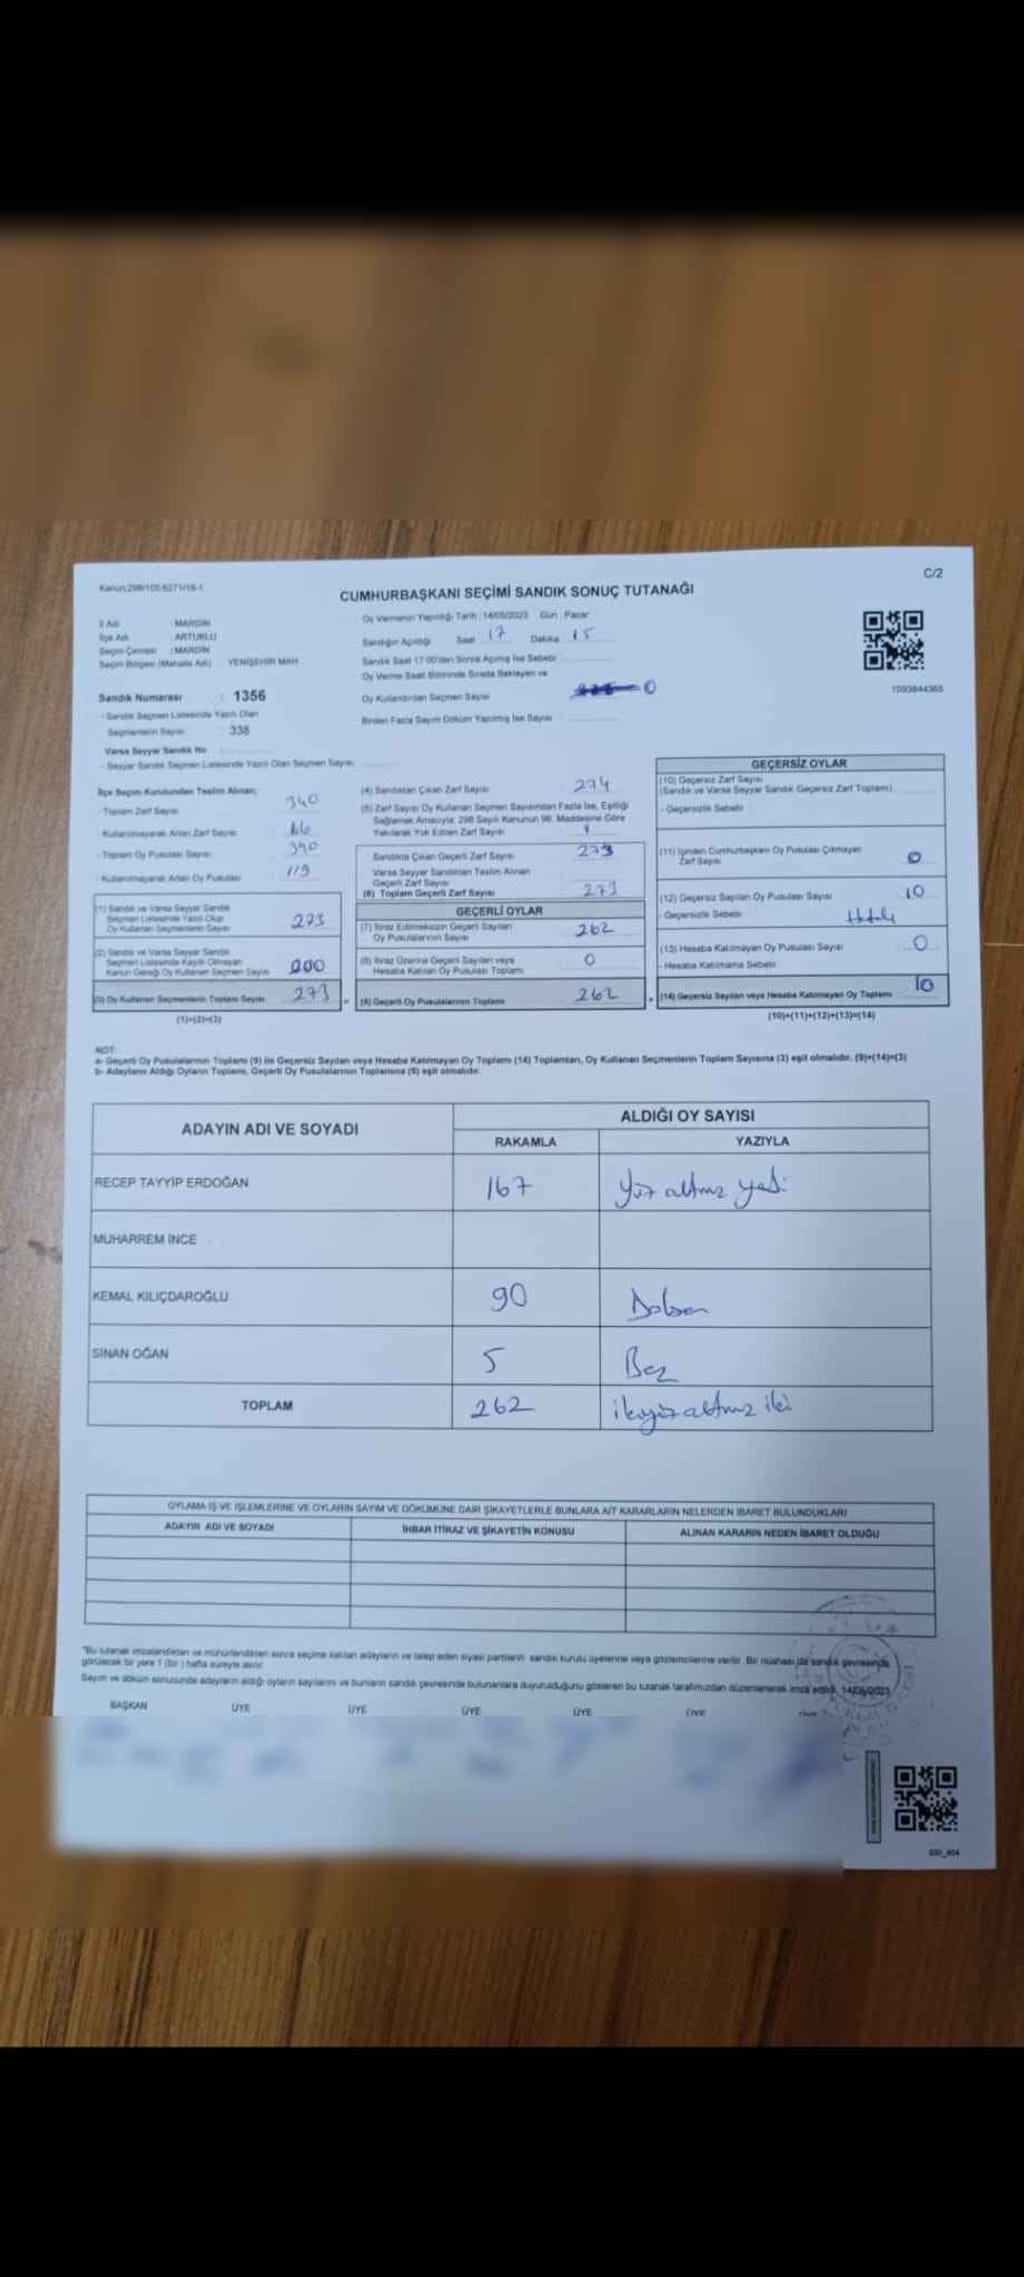 Kanun:298/105 6271/16-1
C/2
CUMHURBAŞKANI SEÇİMİ SANDIK SONUÇ TUTANAĞI
İl Adı : MARDİN
İlçe Adı : ARTUKLU
Seçim Çevresi : MARDİN
Seçim Bölgesi (Mahalle Adı) YENİŞEHİR MAH
Sandık Numarası : 1356
- Sandık Seçmen Listesinde Yazılı Olan
Seçmenlerin Sayısı 338
Varsa Seyyar Sandık No
- Seyyar Sandık Seçmen Listesinde Yazılı Olan Seçmen Sayısı
Oy Vermenin Yapıldığı Tarih :14/05/2023 Gün : Pazar
Sandığın Açıldığı Saat 17 Dakika 15
Sandık Saat 17:00'den Sonra Açılmış İse Sebebi
Oy Verme Saati Bitiminde Sırada Bekleyen ve
Oy Kullandırılan Seçmen Sayısı 0
Birden Fazla Sayım Döküm Yapılmış İse Sayısı
1093844365
İlçe Seçim Kurulundan Teslim Alınan;
- Toplam Zarf Sayısı 340
- Kullanılmayarak Artan Zarf Sayısı 66
- Toplam Oy Pusulası Sayısı 390
- Kullanılmayarak Artan Oy Pusulası 119
(1) Sandık ve Varsa Seyyar Sandık
Seçmen Listesinde Yazılı Olup
Oy Kullanan Seçmenlerin Sayısı 273
(2) Sandık ve Varsa Seyyar Sandık
Seçmen Listesinde Kayıtlı Olmayan
Kanun Gereği Oy Kullanan Seçmen Sayısı 000
(3) Oy Kullanan Seçmenlerin Toplam Sayısı 273
(1)+(2)=(3)
(4) Sandıktan Çıkan Zarf Sayısı 274
(5) Zarf Sayısı Oy Kullanan Seçmen Sayısından Fazla İse, Eşitliği
Sağlamak Amacıyla; 298 Sayılı Kanunun 98. Maddesine Göre
Yakılarak Yok Edilen Zarf Sayısı 1
Sandıkta Çıkan Geçerli Zarf Sayısı 273
Varsa Seyyar Sandıktan Teslim Alınan
Geçerli Zarf Sayısı
(6) Toplam Geçerli Zarf Sayısı 273
GEÇERLİ OYLAR
(7) İtiraz Edilmeksizin Geçerli Sayılan
Oy Pusulalarının Sayısı 262
(8) İtiraz Üzerine Geçerli Sayılan veya
Hesaba Katılan Oy Pusulası Toplamı 0
(9) Geçerli Oy Pusulalarının Toplamı 262
GEÇERSİZ OYLAR
(10) Geçersiz Zarf Sayısı
(Sandık ve Varsa Seyyar Sandık Geçersiz Zarf Toplamı)
- Geçersizlik Sebebi
(11) İçinden Cumhurbaşkanı Oy Pusulası Çıkmayan
Zarf Sayısı 0
(12) Geçersiz Sayılan Oy Pusulası Sayısı 10
- Geçersizlik Sebebi Hatalı
(13) Hesaba Katılmayan Oy Pusulası Sayısı 0
- Hesaba Katılmama Sebebi
(14) Geçersiz Sayılan veya Hesaba Katılmayan Oy Toplamı 10
(10)+(11)+(12)+(13)=(14)
NOT:
a- Geçerli Oy Pusulalarının Toplamı (9) ile Geçersiz Sayılan veya Hesaba Katılmayan Oy Toplamı (14) Toplamları, Oy Kullanan Seçmenlerin Toplam Sayısına (3) eşit olmalıdır. (9)+(14)=(3)
b- Adayların Aldığı Oyların Toplamı, Geçerli Oy Pusulalarının Toplamına (9) eşit olmalıdır.
ADAYIN ADI VE SOYADI
ALDIĞI OY SAYISI
RAKAMLA YAZIYLA
RECEP TAYYİP ERDOĞAN 167 Yüz altmış yedi
MUHARREM İNCE
KEMAL KILIÇDAROĞLU 90 Doksan
SİNAN OĞAN 5 Beş
TOPLAM 262 ikiyüz altmış iki
OYLAMA İŞ VE İŞLEMLERİNE VE OYLARIN SAYIM VE DÖKÜMÜNE DAİR ŞİKAYETLERLE BUNLARA AİT KARARLARIN NELERDEN İBARET BULUNDUKLARI
ADAYIN ADI VE SOYADI İHBAR İTİRAZ VE ŞİKAYETİN KONUSU ALINAN KARARIN NEDEN İBARET OLDUĞU
*Bu tutanak imzalandıktan ve mühürlendikten sonra seçime katılan adayların ve talep eden siyasi partilerin sandık kurulu üyelerine veya gözlemcilerine verilir. Bir nüshası da sandık çevresinde
görülecek bir yere 1 (bir) hafta süreyle asılır.
Sayım ve döküm sonucunda adayların aldığı oyların sayılarını ve bunların sandık çevresinde bulunanlara duyurulduğunu gösteren bu tutanak tarafımızdan düzenlenerek imza edildi. 14/05/2023
BAŞKAN ÜYE ÜYE ÜYE ÜYE ÜYE